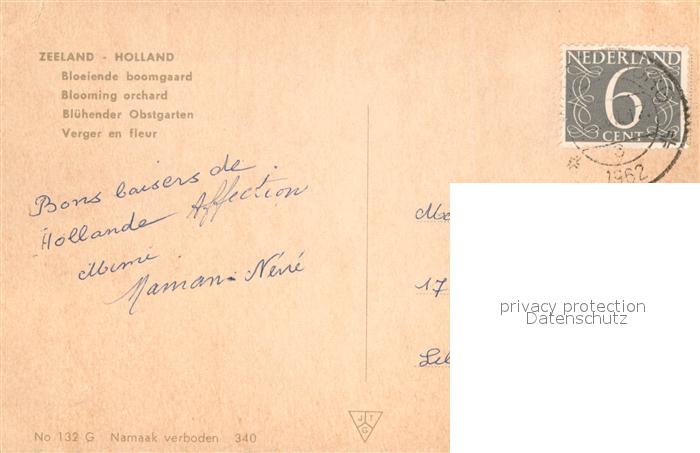 ZEELAND - HOLLAND
Bloeiende boomgaard
Blooming orchard
Blühender Obstgarten
Verger en fleur
NEDERLAND
6
CENT
1962
Bons baisers de
Hollande Affection
Mimi
Maman
17
privacy protection
Datenschutz
No 132 G Namaak verboden 340
J T G